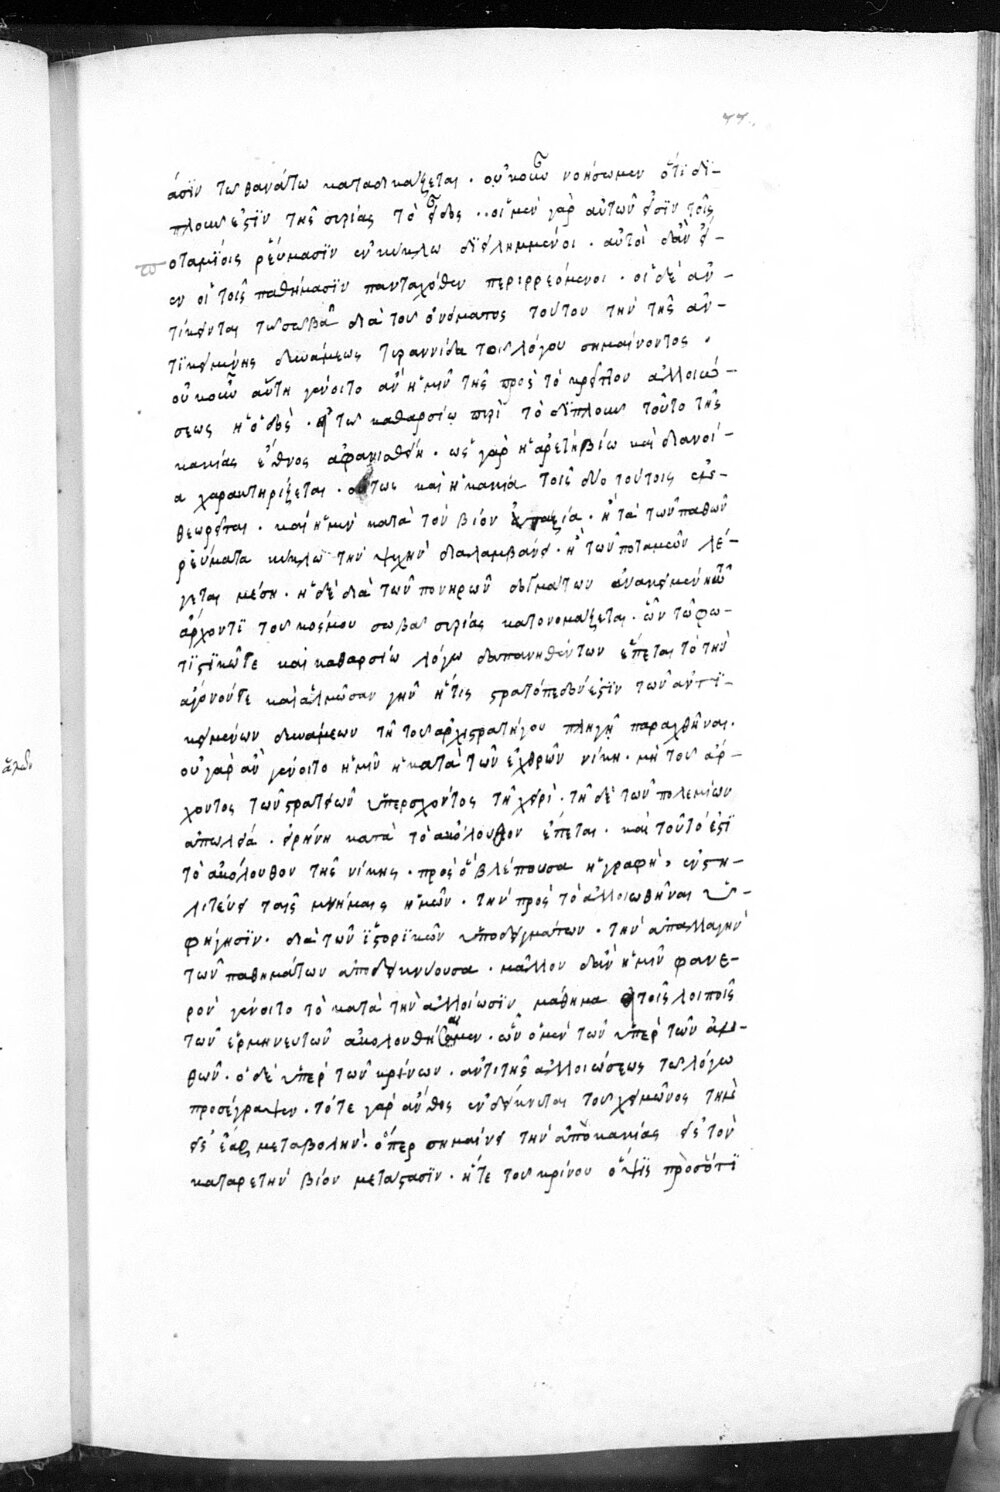 άσϊν τω θανάτω καταδικάζεται . οὐκοῦν νοήσωμεν ὅτι δι-
πλοῦν ἐστϊν τῆς συρίας τὸ εἶδος . . οἱ μὲν γὰρ αὐτῶν εἰσϊν τοῖς
ποταμΐοις ῥεύμασϊν ἐν κύκλω διειλημμένοι . αὐτοὶ δ' ἂν εἶ-
εν οἱ τοῖς παθήμασϊν πανταχόθεν περιρρεόμενοι . οἱ δὲ ἀν-
τίκεινται τω σωβὰ διὰ τοῦ ὀνόματος τούτου τὴν τῆς ἀν-
τϊκειμένης δυνάμεως τυραννίδα τοῦ λόγου σημαίνοντος .
οὐκοῦν αὕτη γένοιτο ἂν ἡμῖν τῆς πρὸς τὸ κρεῖττον ἀλλοιώ-
σεως ἡ ὁδὸς . ἐν τῶ καθαρσίω πυρὶ τὸ διπλοῦν τοῦτο τῆς
κακίας ἔθνος ἀφανισθῆ . ὡς γὰρ ἡ ἀρετὴ βίω καὶ διανοί-
α χαρακτηρίζεται . οὕτως καὶ ἡ κακία τοῖς δύο τούτοις ἐν-
θεωρεῖται . καὶ ἡ μὲν κατὰ τὸν βίον ἀταξία . ἡ τὰ τῶν παθῶν
ῥεύματα κύκλω τὴν ψυχὴν διαλαμβάνει . ἡ τῶν ποταμῶν λέ-
γεται μέση . ἡ δὲ διὰ τῶν πονηρῶν δογμάτων ἀνακειμένη τῶ
ἄρχοντϊ τοῦ κόσμου σωβα συρίας κατονομάζεται . ὧν τῶ φω-
τϊστϊκῶ τε καὶ καθαρσίω λόγω δαπανηθέντων ἕπεται τὸ τὴν
ἄγονόν τε καὶ ἁλμῶσαν γῆν ἥτις στρατόπεδόν ἐστϊν τῶν ἀντϊ-
κειμένων δυνάμεων τῆ τοῦ ἀρχιστρατήγου πληγῆ παραχθῆναι .
οὐ γὰρ ἂν γένοιτο ἡμῖν ἡ κατὰ τῶν ἐχθρῶν νίκη . μὴ τοῦ ἄρ-
χοντος τῶν στρατειῶν ὑπερσχόντος τῆ χειρὶ . τῆ δὲ τῶν πολεμίων
ἀπωλεία . εἰρήνη κατὰ τὸ ἀκόλουθον ἕπεται . καὶ τοῦτό ἐστϊ
τὸ ἀκόλουθον τῆς νίκης . πρὸς ὃ βλέπουσα ἡ γραφὴ , ἐνστη-
λιτεύει ταῖς μνήμαις ἡμῶν . τὴν πρὸς τὸ ἀλλοιωθῆναι ὑ-
φήγησϊν . διὰ τῶν ἱστορϊκῶν ὑποδειγμάτων . τὴν ἀπαλλαγὴν
τῶν παθημάτων ἀποδεικνύουσα . μᾶλλον δ' ἂν ἡμῖν φανε-
ρὸν γένοιτο τὸ κατὰ τὴν ἀλλοίωσϊν μάθημα εἰ τοῖς λοιποῖς
τῶν ἑρμηνευτῶν ἀκολουθήσαιμεν . ὧν ὁ μὲν τῶν ὑπὲρ τῶν ἀν-
θῶν . ὁ δὲ ὑπὲρ τῶν κρίνων . ἀντὶ τῆς ἀλλοιώσεως τω λόγω
προσέγραψεν . τό τε γὰρ ἄνθος ἐνδείκνυται τοῦ χειμῶνος τὴν
εἰς ἔαρ μεταβολὴν . ὅπερ σημαίνει τὴν ἀπὸ κακίας εἰς τὸν
κατ' ἀρετὴν βίον μετάστασϊν . ἥ τε τοῦ κρίνου ὄψϊς πρὸς ὅτϊ